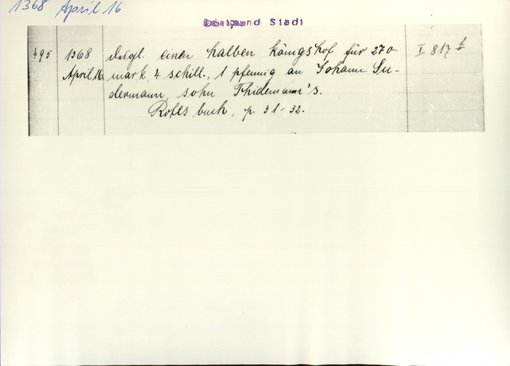 1368 April 16
Dortmund Stadt
495 1368 dsgl. einen halben königshof für 270 I 817 f
April 16 mark 4 schill., 1 pfennig an Johann Su-
dermann, sohn Thidemann's.
Rotes buch, p. 31-32.